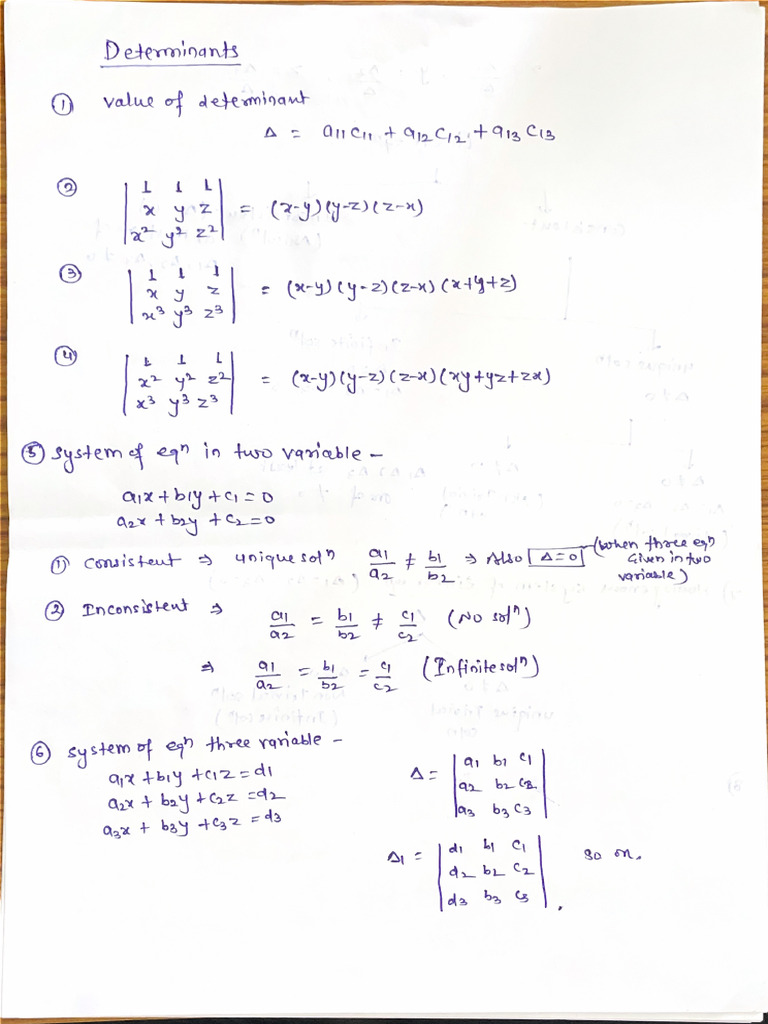 Determinants
① value of determinant
Δ = a11C11 + a12C12 + a13C13
② | 1 1 1 |
| x y z | = (x-y)(y-z)(z-x)
| x² y² z² |
③ | 1 1 1 |
| x y z | = (x-y)(y-z)(z-x)(x+y+z)
| x³ y³ z³ |
④ | 1 1 1 |
| x² y² z² | = (x-y)(y-z)(z-x)(xy+yz+zx)
| x³ y³ z³ |
⑤ system of eqⁿ in two variable –
a1x + b1y + c1 = 0
a2x + b2y + c2 = 0
① Consistent ⇒ unique solⁿ a1/a2 ≠ b1/b2 ⇒ Also Δ = 0 (when three eqⁿ
Given in two
variable)
② Inconsistent ⇒ a1/a2 = b1/b2 ≠ c1/c2 (No solⁿ)
⇒ a1/a2 = b1/b2 = c1/c2 (Infinite solⁿ)
⑥ system of eqⁿ three variable –
a1x + b1y + c1z = d1
a2x + b2y + c2z = d2
a3x + b3y + c3z = d3
Δ = | a1 b1 c1 |
| a2 b2 c2 |
| a3 b3 c3 |
Δ1 = | d1 b1 c1 |
| d2 b2 c2 | so on.
| d3 b3 c3 | ,